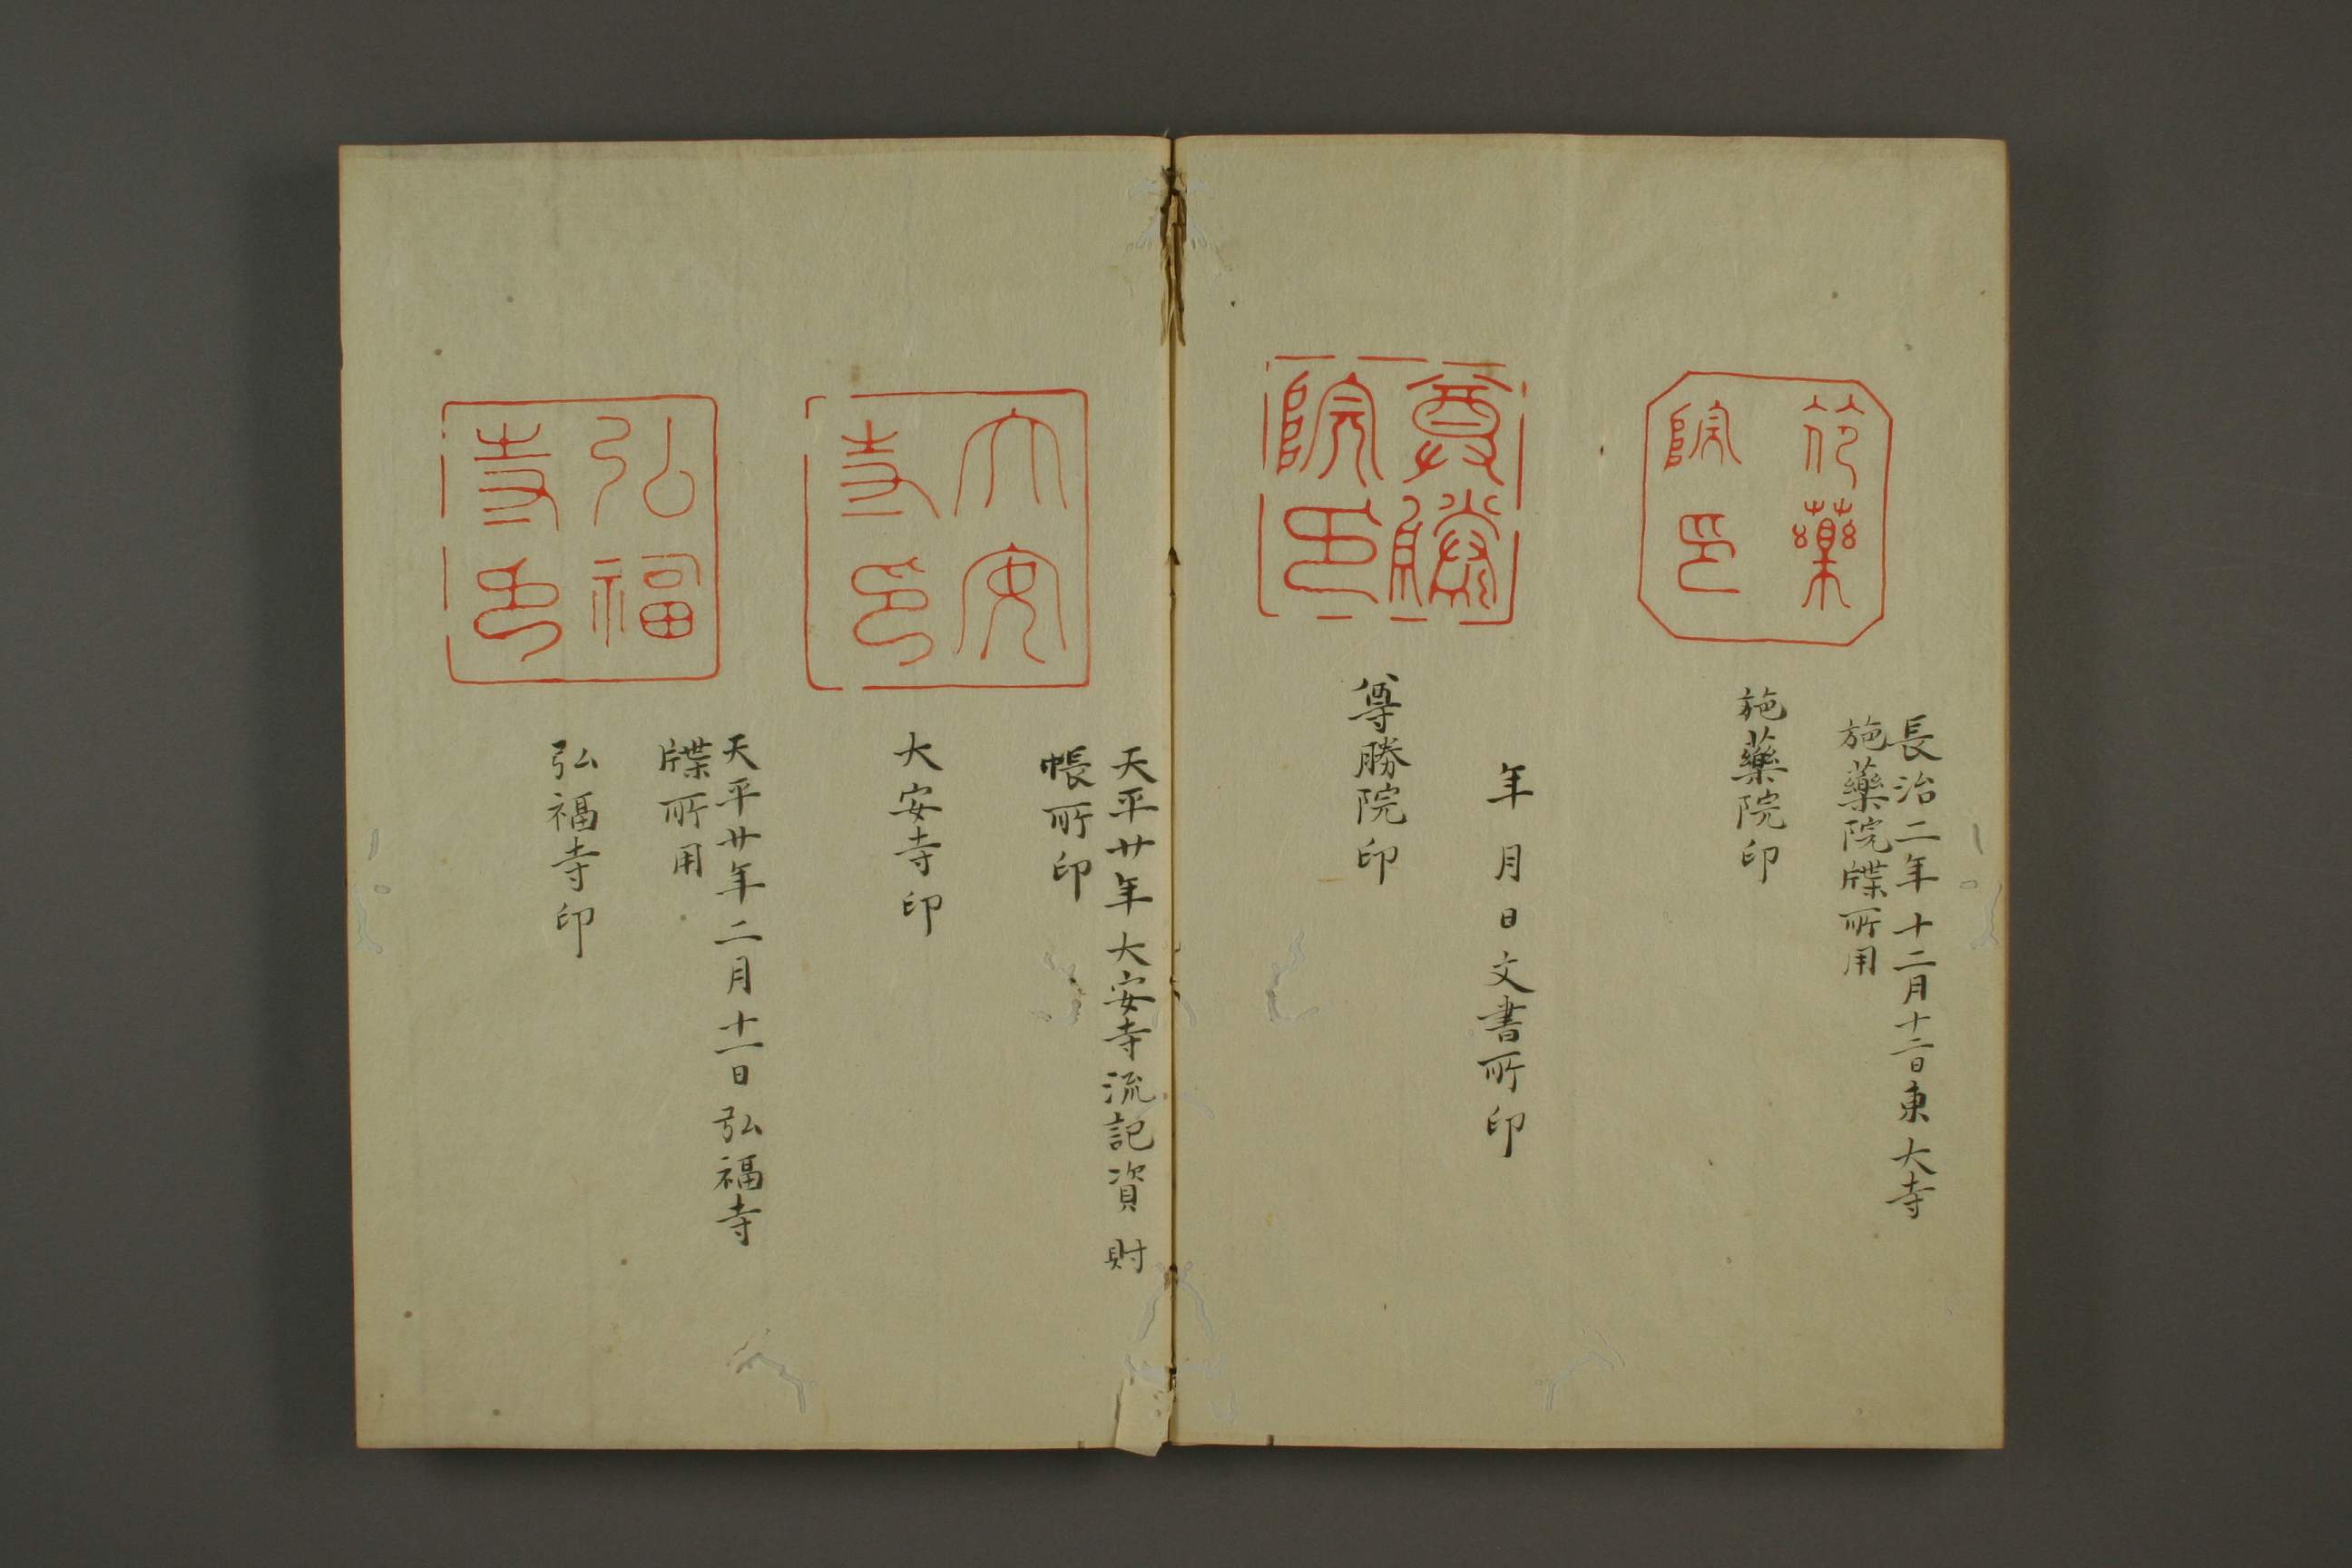 藥
院印
長治二年十二月十二日東大寺
施藥院牒所用
施藥院印
尊勝
院印
年月日文書所印
尊勝院印
大安
寺印
天平廿年大安寺流記資財
帳所印
大安寺印
弘福
寺印
天平廿年二月十一日弘福寺
牒所用
弘福寺印